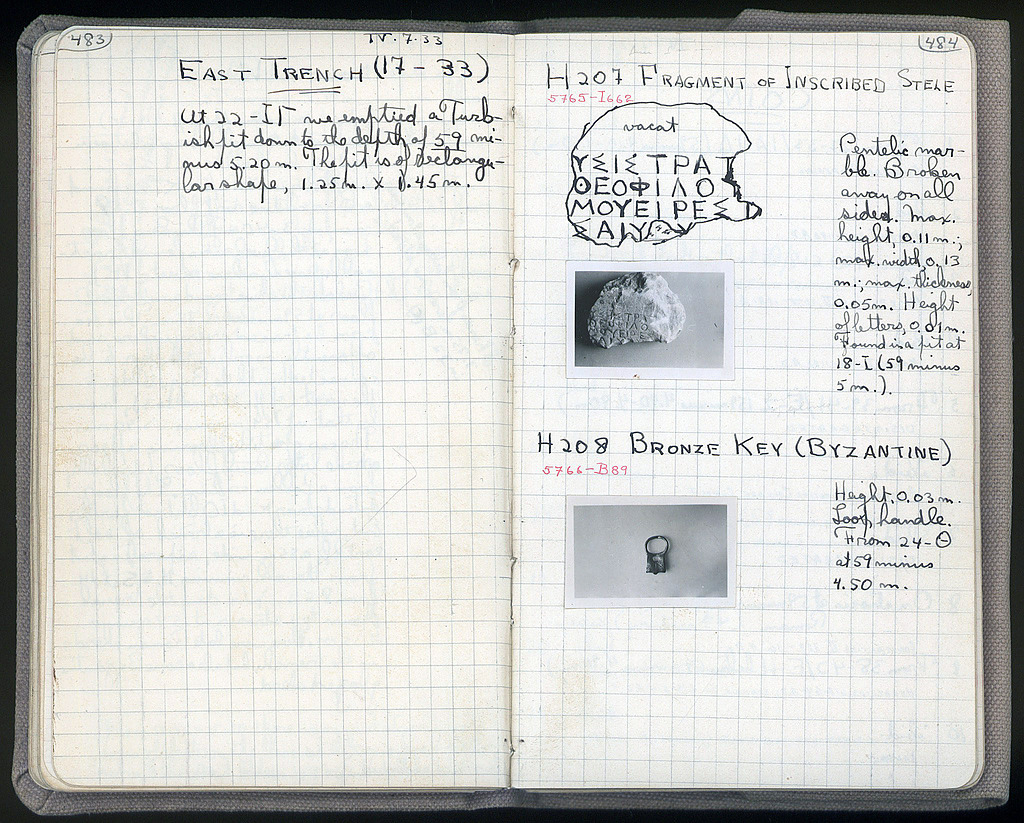 483
IV.7.33
EAST TRENCH (17 - 33)
At 22 - IΓ we emptied a Turk-
ish pit down to the depth of 59 mi-
nus 5.20 m. The pit is of rectangu-
lar shape, 1.25 m. x 0.45 m.
484
H 207 FRAGMENT OF INSCRIBED STELE
5765-I662
vacat
ΥΣΙΣΤΡΑΤ
ΘΕΟΦΙΛΟ
ΜΟΥΕΙΡΕΣ
ΣΑΙΥ
Pentelic mar-
ble. Broken
away on all
sides. Max.
height, 0.11 m.;
max. width, 0.13
m.; max. thickness,
0.05 m. Height
of letters, 0.01 m.
Found in a pit at
18-I (59 minus
5 m.).
H 208 BRONZE KEY (BYZANTINE)
5766-B89
Height, 0.03 m.
Loop handle.
From 24-Θ
at 59 minus
4.50 m.